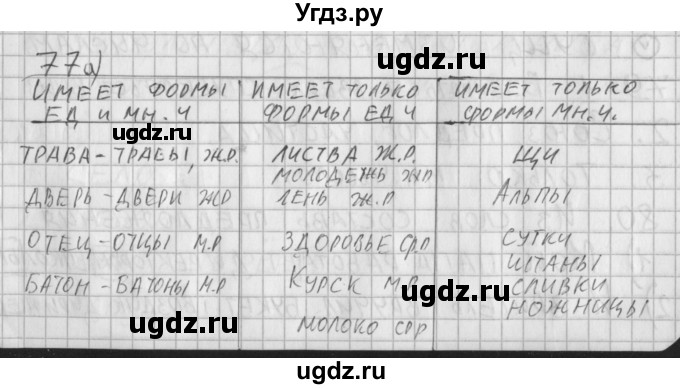 Угдз.ру
77а)
ИМЕЕТ ФОРМЫ
ЕД И МН. Ч
ИМЕЕТ ТОЛЬКО
ФОРМЫ ЕД Ч
ИМЕЕТ ТОЛЬКО
ФОРМЫ МН. Ч.
ugdz.ru
ugdz.ru
ugdz.ru
ТРАВА - ТРАВЫ, Ж.Р.
ДВЕРЬ - ДВЕРИ ЖР
ОТЕЦ - ОТЦЫ М.Р
БАТОН - БАТОНЫ М.Р
ЛИСТВА Ж.Р.
МОЛОДЕЖЬ ЖР
ЛЕНЬ Ж.Р
ЗДОРОВЬЕ СР.Р
КУРСК М.Р.
МОЛОКО СРР
ЩИ
АЛЬПЫ
СУТКИ
ШТАНЫ
СЛИВКИ
НОЖНИЦЫ
ugdz.ru
ugdz.ru
ugdz.ru
ugdz.ru
Угдз.ру